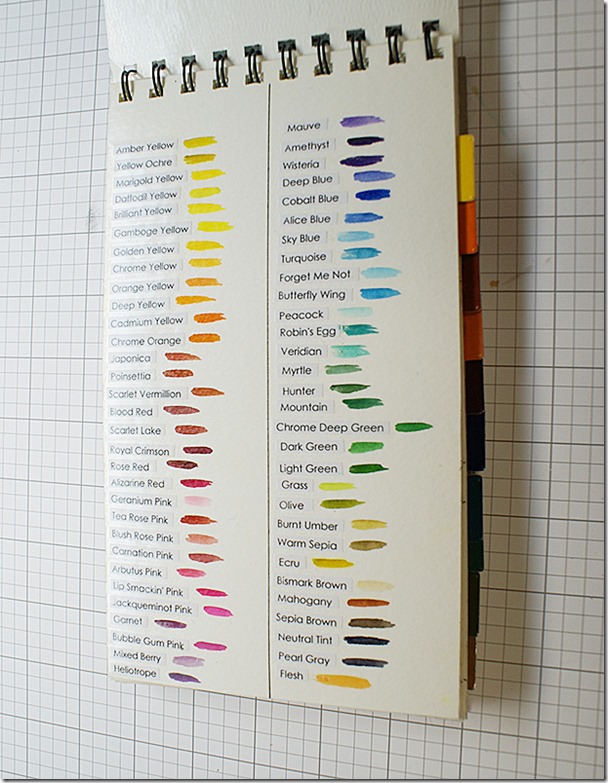 Amber Yellow
Yellow Ochre
Marigold Yellow
Daffodil Yellow
Brilliant Yellow
Gamboge Yellow
Golden Yellow
Chrome Yellow
Orange Yellow
Deep Yellow
Cadmium Yellow
Chrome Orange
Japonica
Poinsettia
Scarlet Vermillion
Blood Red
Scarlet Lake
Royal Crimson
Rose Red
Alizarine Red
Geranium Pink
Tea Rose Pink
Blush Rose Pink
Carnation Pink
Arbutus Pink
Lip Smackin' Pink
Jackqueminot Pink
Garnet
Bubble Gum Pink
Mixed Berry
Heliotrope
Mauve
Amethyst
Wisteria
Deep Blue
Cobalt Blue
Alice Blue
Sky Blue
Turquoise
Forget Me Not
Butterfly Wing
Peacock
Robin's Egg
Veridian
Myrtle
Hunter
Mountain
Chrome Deep Green
Dark Green
Light Green
Grass
Olive
Burnt Umber
Warm Sepia
Ecru
Bismark Brown
Mahogany
Sepia Brown
Neutral Tint
Pearl Gray
Flesh